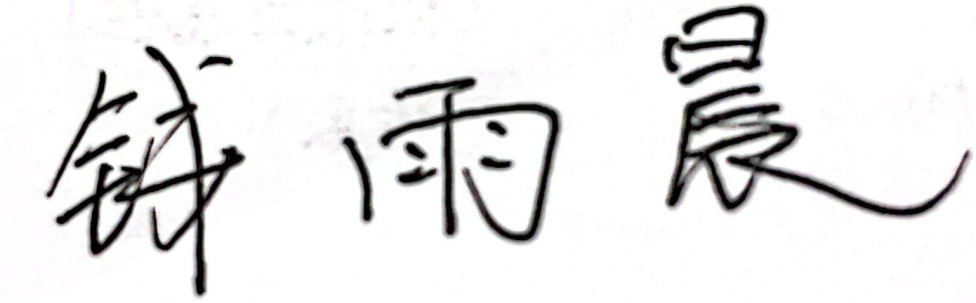 钱雨晨